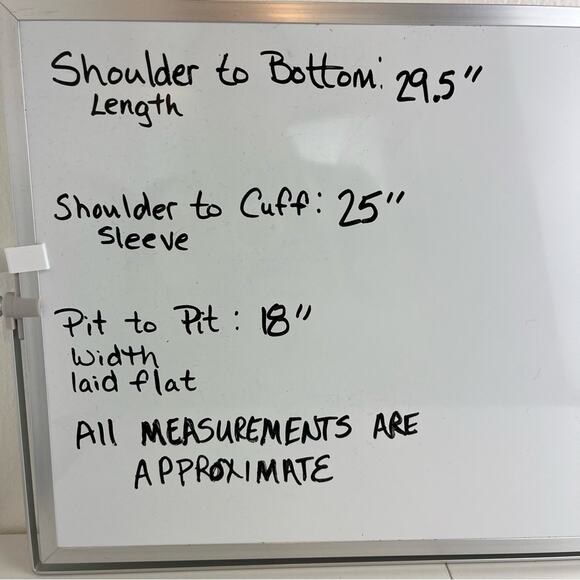 Shoulder to Bottom: 29.5"
Length
Shoulder to Cuff: 25"
Sleeve
Pit to Pit: 18"
Width
laid flat
All MEASUREMENTS ARE
APPROXIMATE